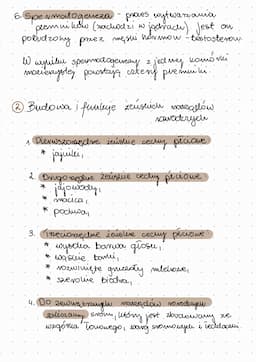 6. Spermatogeneza - proces wytwarzania
plemników (zachodzi w jądrach) jest on
pobudzany przez męski hormon - testosteron
W wyniku spermatogenezy z jednej komórki
macierzystej powstają cztery plemniki
2 Budowa i funkcje żeńskich narządów
rozrodczych
1. Pierwszorzędne żeńskie cechy płciowe
* jajniki,
2. Drugorzędne żeńskie cechy płciowe
* jajowody,
* macica,
* pochwa,
3. Trzeciorzędne żeńskie cechy płciowe
* wysoka barwa głosu,
* wąskie barki,
* rozwinięte gruczoły mleczne,
* szerokie biodra,
4. Do zewnętrznych narządów rozrodczych
zaliczamy srom, który jest zbudowany ze
wzgórka łonowego, warg sromowych i łechtaczki.